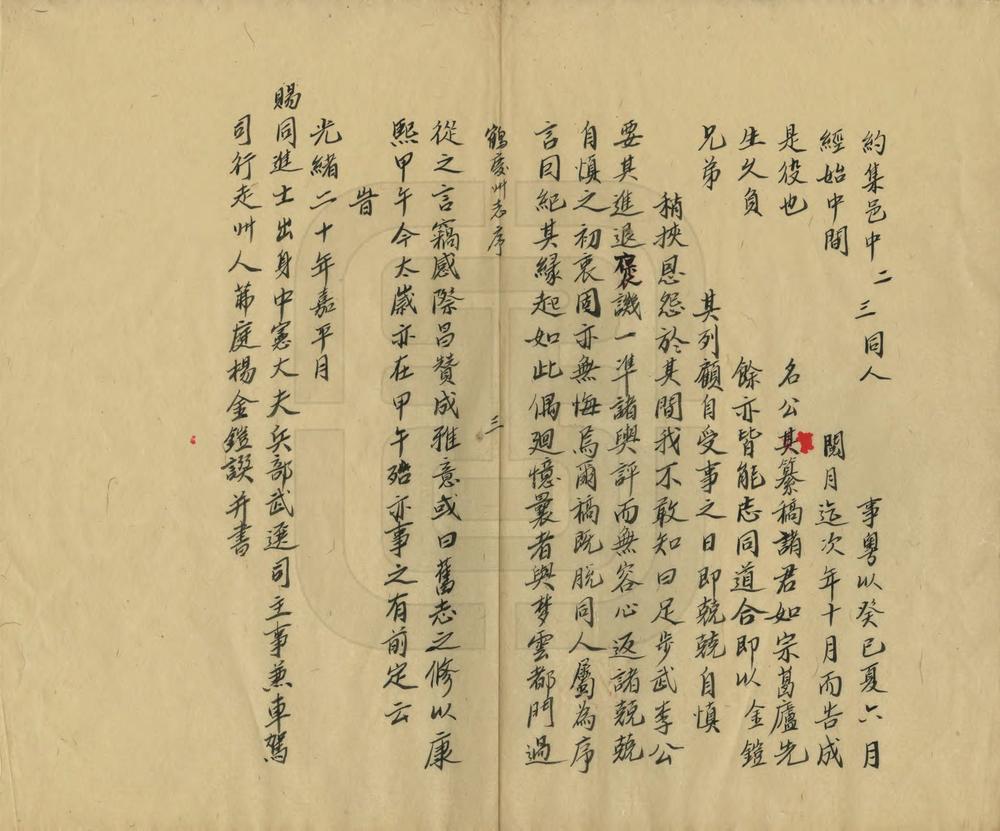 約集邑中二三同人　事粵以癸巳夏六月
經始中間　閱月迄次年十月而告成
是役也　名公其纂稿諸君如宗葛廬先
生久負　餘亦皆能志同道合即以金鎧
兄弟　其列顧自受事之日即兢兢自慎
稍挾恩怨於其間我不敢知曰足步武李公
要其進退褒譏一準諸輿評而無容心返諸兢兢
自慎之初衷固亦無悔焉爾稿既脫同人屬為序
言因紀其緣起如此偶廻憶曩者與梦雲都門過
鶴慶州志序　三
從之言竊感際昌贊成雅意或曰舊志之修以康
熙甲午今太歲亦在甲午殆亦事之有前定云
旹
光緒二十年嘉平月
賜同進士出身中憲大夫兵部武選司主事兼車駕
司行走州人菊庭楊金鎧譔并書